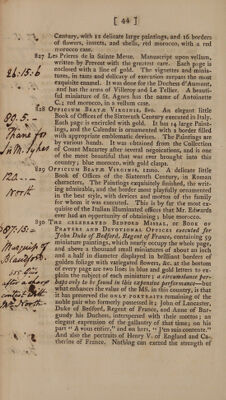 [ 44 ]
Century, with 12 delicate large paintings, and 16 borders
of flowers, insects, and shells, red morocco, with a red
morocco case.
827 Les Prieres de la Sainte Messe. Manuscript upon vellum,
written by Prevost with the greatest care. Each page is
inclosed with a line of gold. The vignettes and minia-
tures, in taste and delicacy of execution surpass the most
exquisite enamel. It was done for the Duchess d'Aumont,
and has the arms of Villeroy and Le Tellier. A beauti-
ful miniature of St. Agnes has the name of Antonitte
C.; red morocco, in a vellum case.
24.15.6
828 OFFICIUM BEATÆ VIRGINIS, 8vo. An elegant little
Book of Offices of the Sixteenth Century executed in Italy.
Each page is encircled with gold. It has 14 large Paint-
ings, and the Calendar is ornamented with a border filled
with appropriate emblematic devices. The Paintings are
by various hands. It was obtained from the Collection
of Count Macarty after several negociations, and is one
of the most beautiful that was ever brought into this
country; blue morocco, with gold clasps.
80.5.-
829 OFFICIUM BEATÆ VIRGINIS, 12mo. A delicate little
Book of Offices of the Sixteenth Century, in Roman
characters. The Paintings exquisitely finished, the writ-
ing admirable, and the border most playfully ornamented
in the best style, with devices and mottos of the family
for whom it was executed. This is by far the most ex-
quisite of the Italian illumined offices that Mr. Edwards
ever had an opportunity of obtaining; blue morocco.
North
830 THE CELEBRATED BEDFORD MISSAL, or BOOK OF
PRAYERS AND DEVOTIONAL OFFICES executed for
John Duke of Bedford, Regent of France, containing 59
miniature paintings, which nearly occupy the whole page,
and above a thousand small miniatures of about an inch
and a half in diameter displayed in brilliant borders of
golden foliage with variegated flowers, &c. at the bottom
of every page are two lines in blue and gold letters to ex-
plain the subject of each miniature; a circumstance per-
haps only to be found in this expensive performance—but
what enhances the value of the MS. in this country, is that
it has preserved the ONLY PORTRAITS remaining of the
noble pair who formerly possessed it; John of Lancaster,
Duke of Bedford, Regent of France, and Anne of Bur-
gundy his Duchess, interspersed with their mottos; an
elegant expression of the gallantry of that time; on his
part “A vous entier,” and on hers, “J'en suis contente.”
And also the portraits of Henry V. of England and Ca-
therine of France. Nothing can exceed the strength of
687.15.-
Marquis of
Blandford
after a sharp
contest